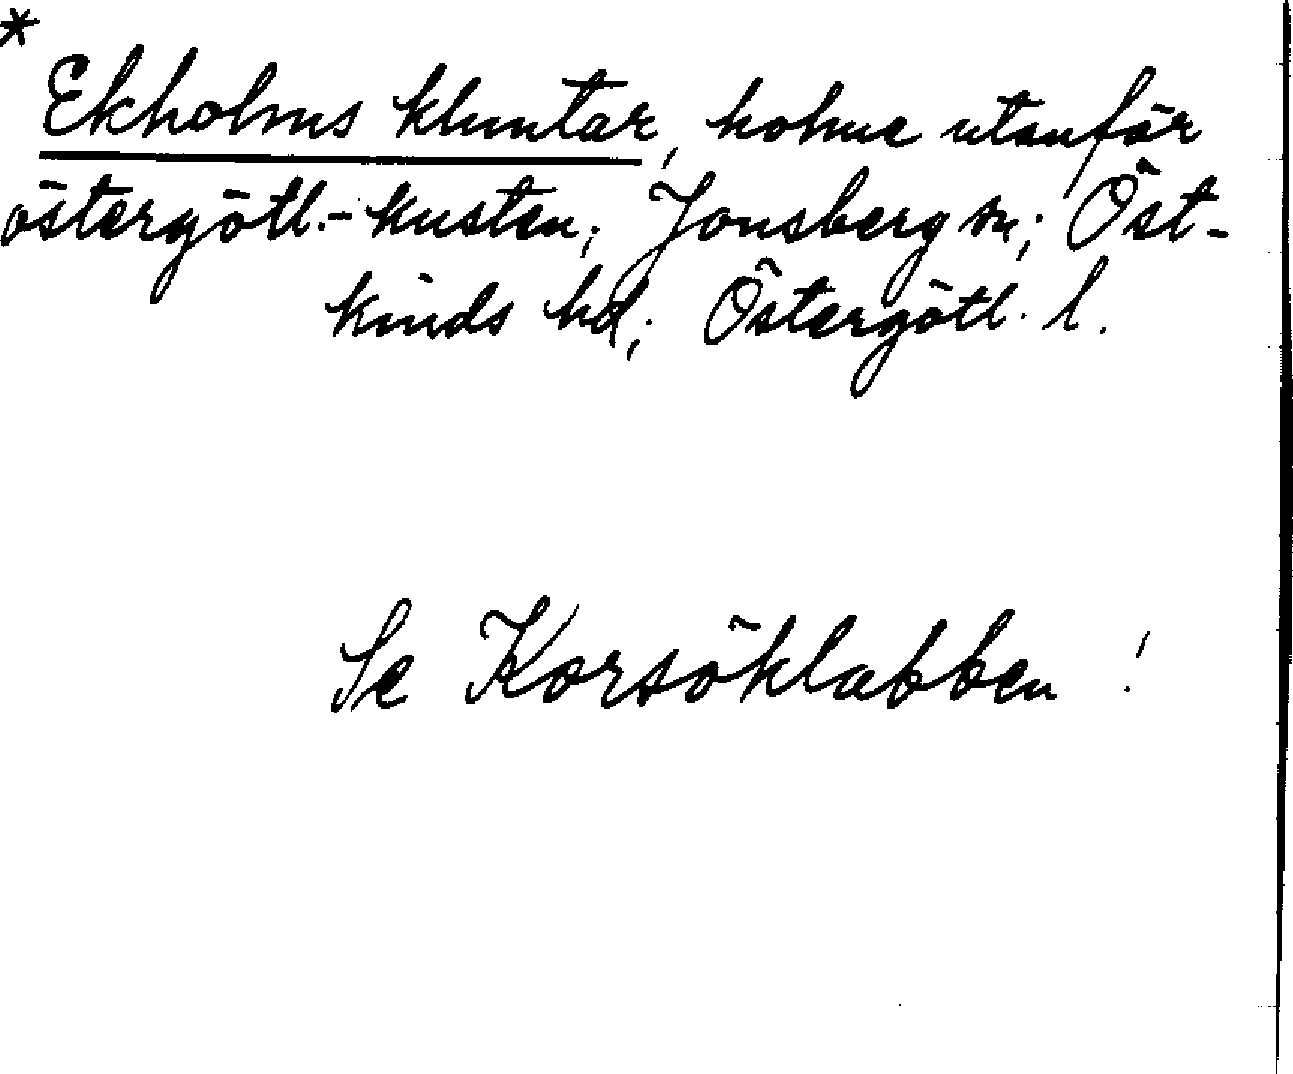 *
Ekholms kluntar, holme utanför
östergötl.-kusten; Jonsberg sn; Öst-
kinds hd; Östergötl. l.
Se Korsöklabben!